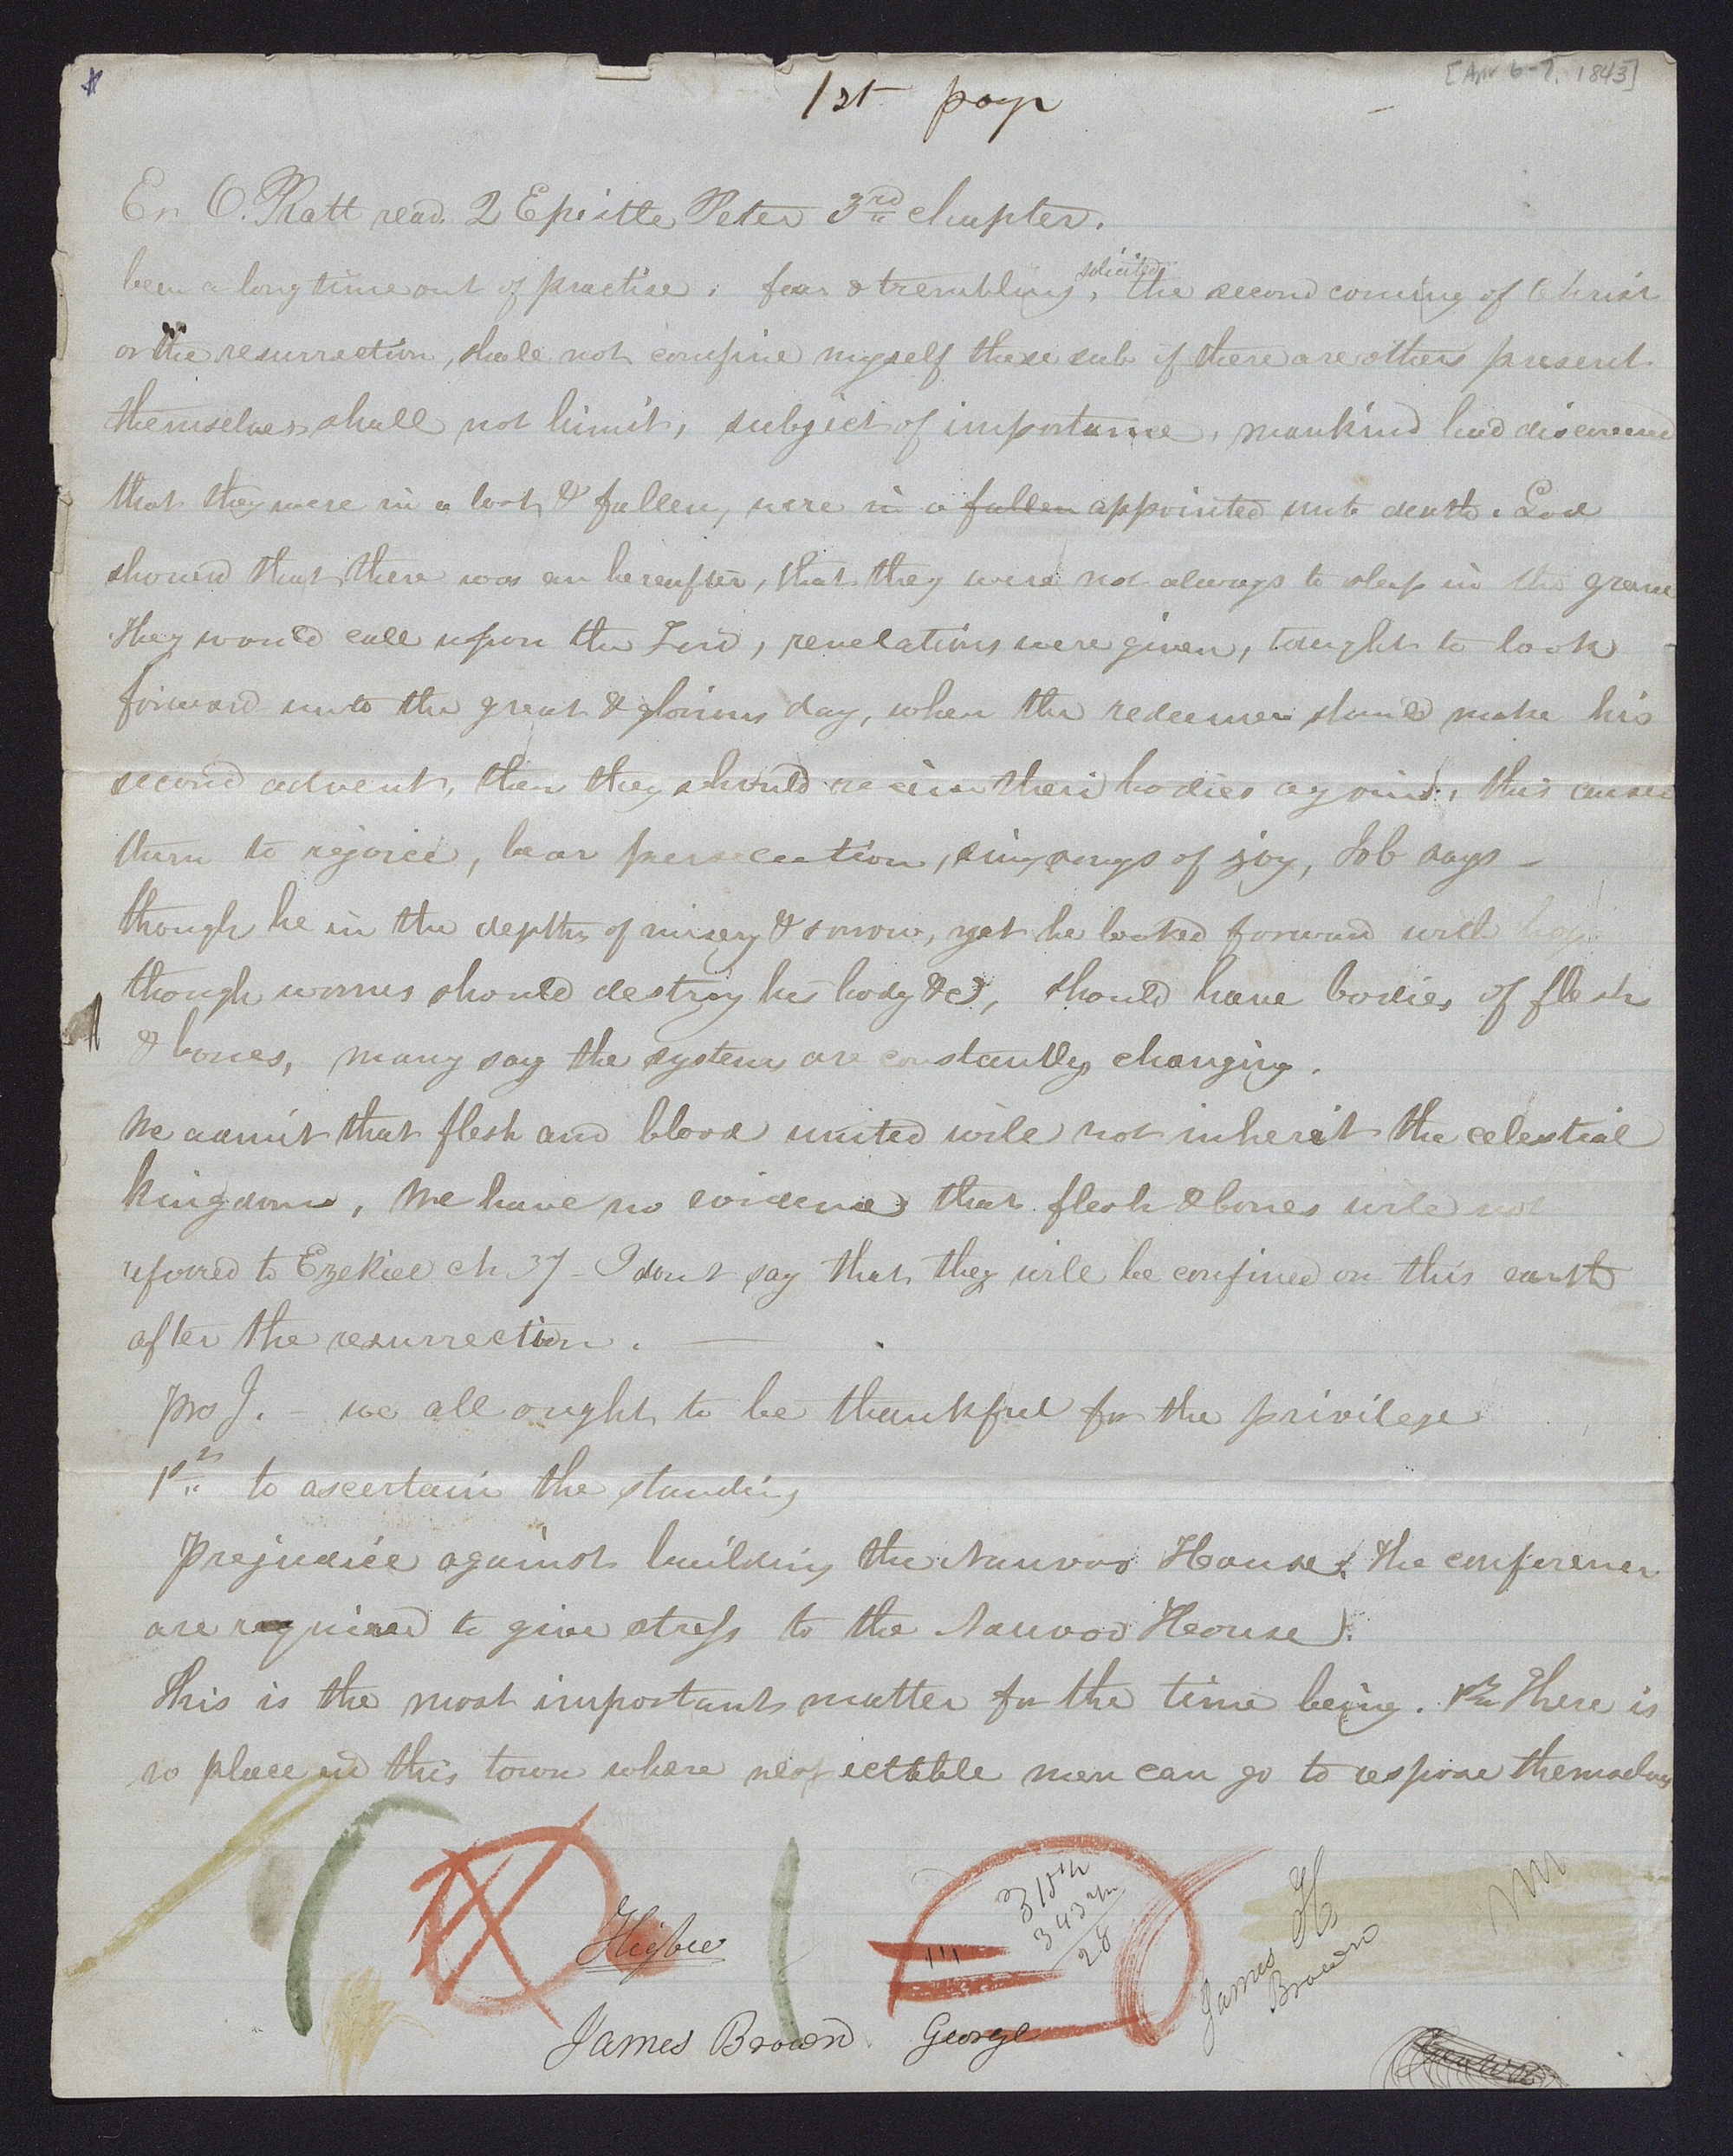 [Apr 6-7. 1843]
1st page
Er O. Pratt read 2 Epistle Peter 3rd chapter.
been a long time out of practise. fear & trembling, solicited the second coming of Christ
or the resurrection, shall not confine myself these sub if there are others present
themselves shall not limit, subject of importance, mankind had discovered
that they were in a lost & fallen, were in a fallen appointed unto death. God
showed that there was an hereafter, that they were not always to sleep in the grave
They would call upon the Lord, revelations were given, taught to look
forward unto the great & glorious day, when the redeemer should make his
second advent, then they should receive their bodies again, this caused
them to rejoice, bear persecution, sing songs of joy, Job says -
though he in the depths of misery & sorrow, yet he looked forward with hope
though worms should destroy his body &c, should have bodies of flesh
& bones, many say the systems are constantly changing.
We admit that flesh and blood united will not inherit the celestial
kingdom, We have no evidence that flesh & bones will not
referred to Ezekiel ch 37 - I dont say that they will be confined on this earth
after the resurrection. —
pros J. - we all ought to be thankful for the privilege
1st to ascertain the standing
Prejudice against building the Nauvoo House. The conference
are required to give stress to the Nauvoo House.
This is the most important matter for the time being. 1st There is
no place in this town where respectable men can go to respose themselves
Higbee
343
28
James H
Brown
James Brown George